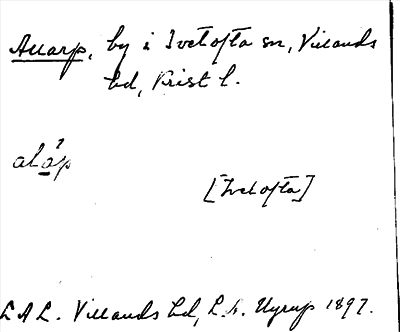 Allarp, by i Ivetofta sn, Villands
hd, Krist l.
alåp
[Ivetofta]
L A L. Villands hd, L. h. Nyrup 1897.